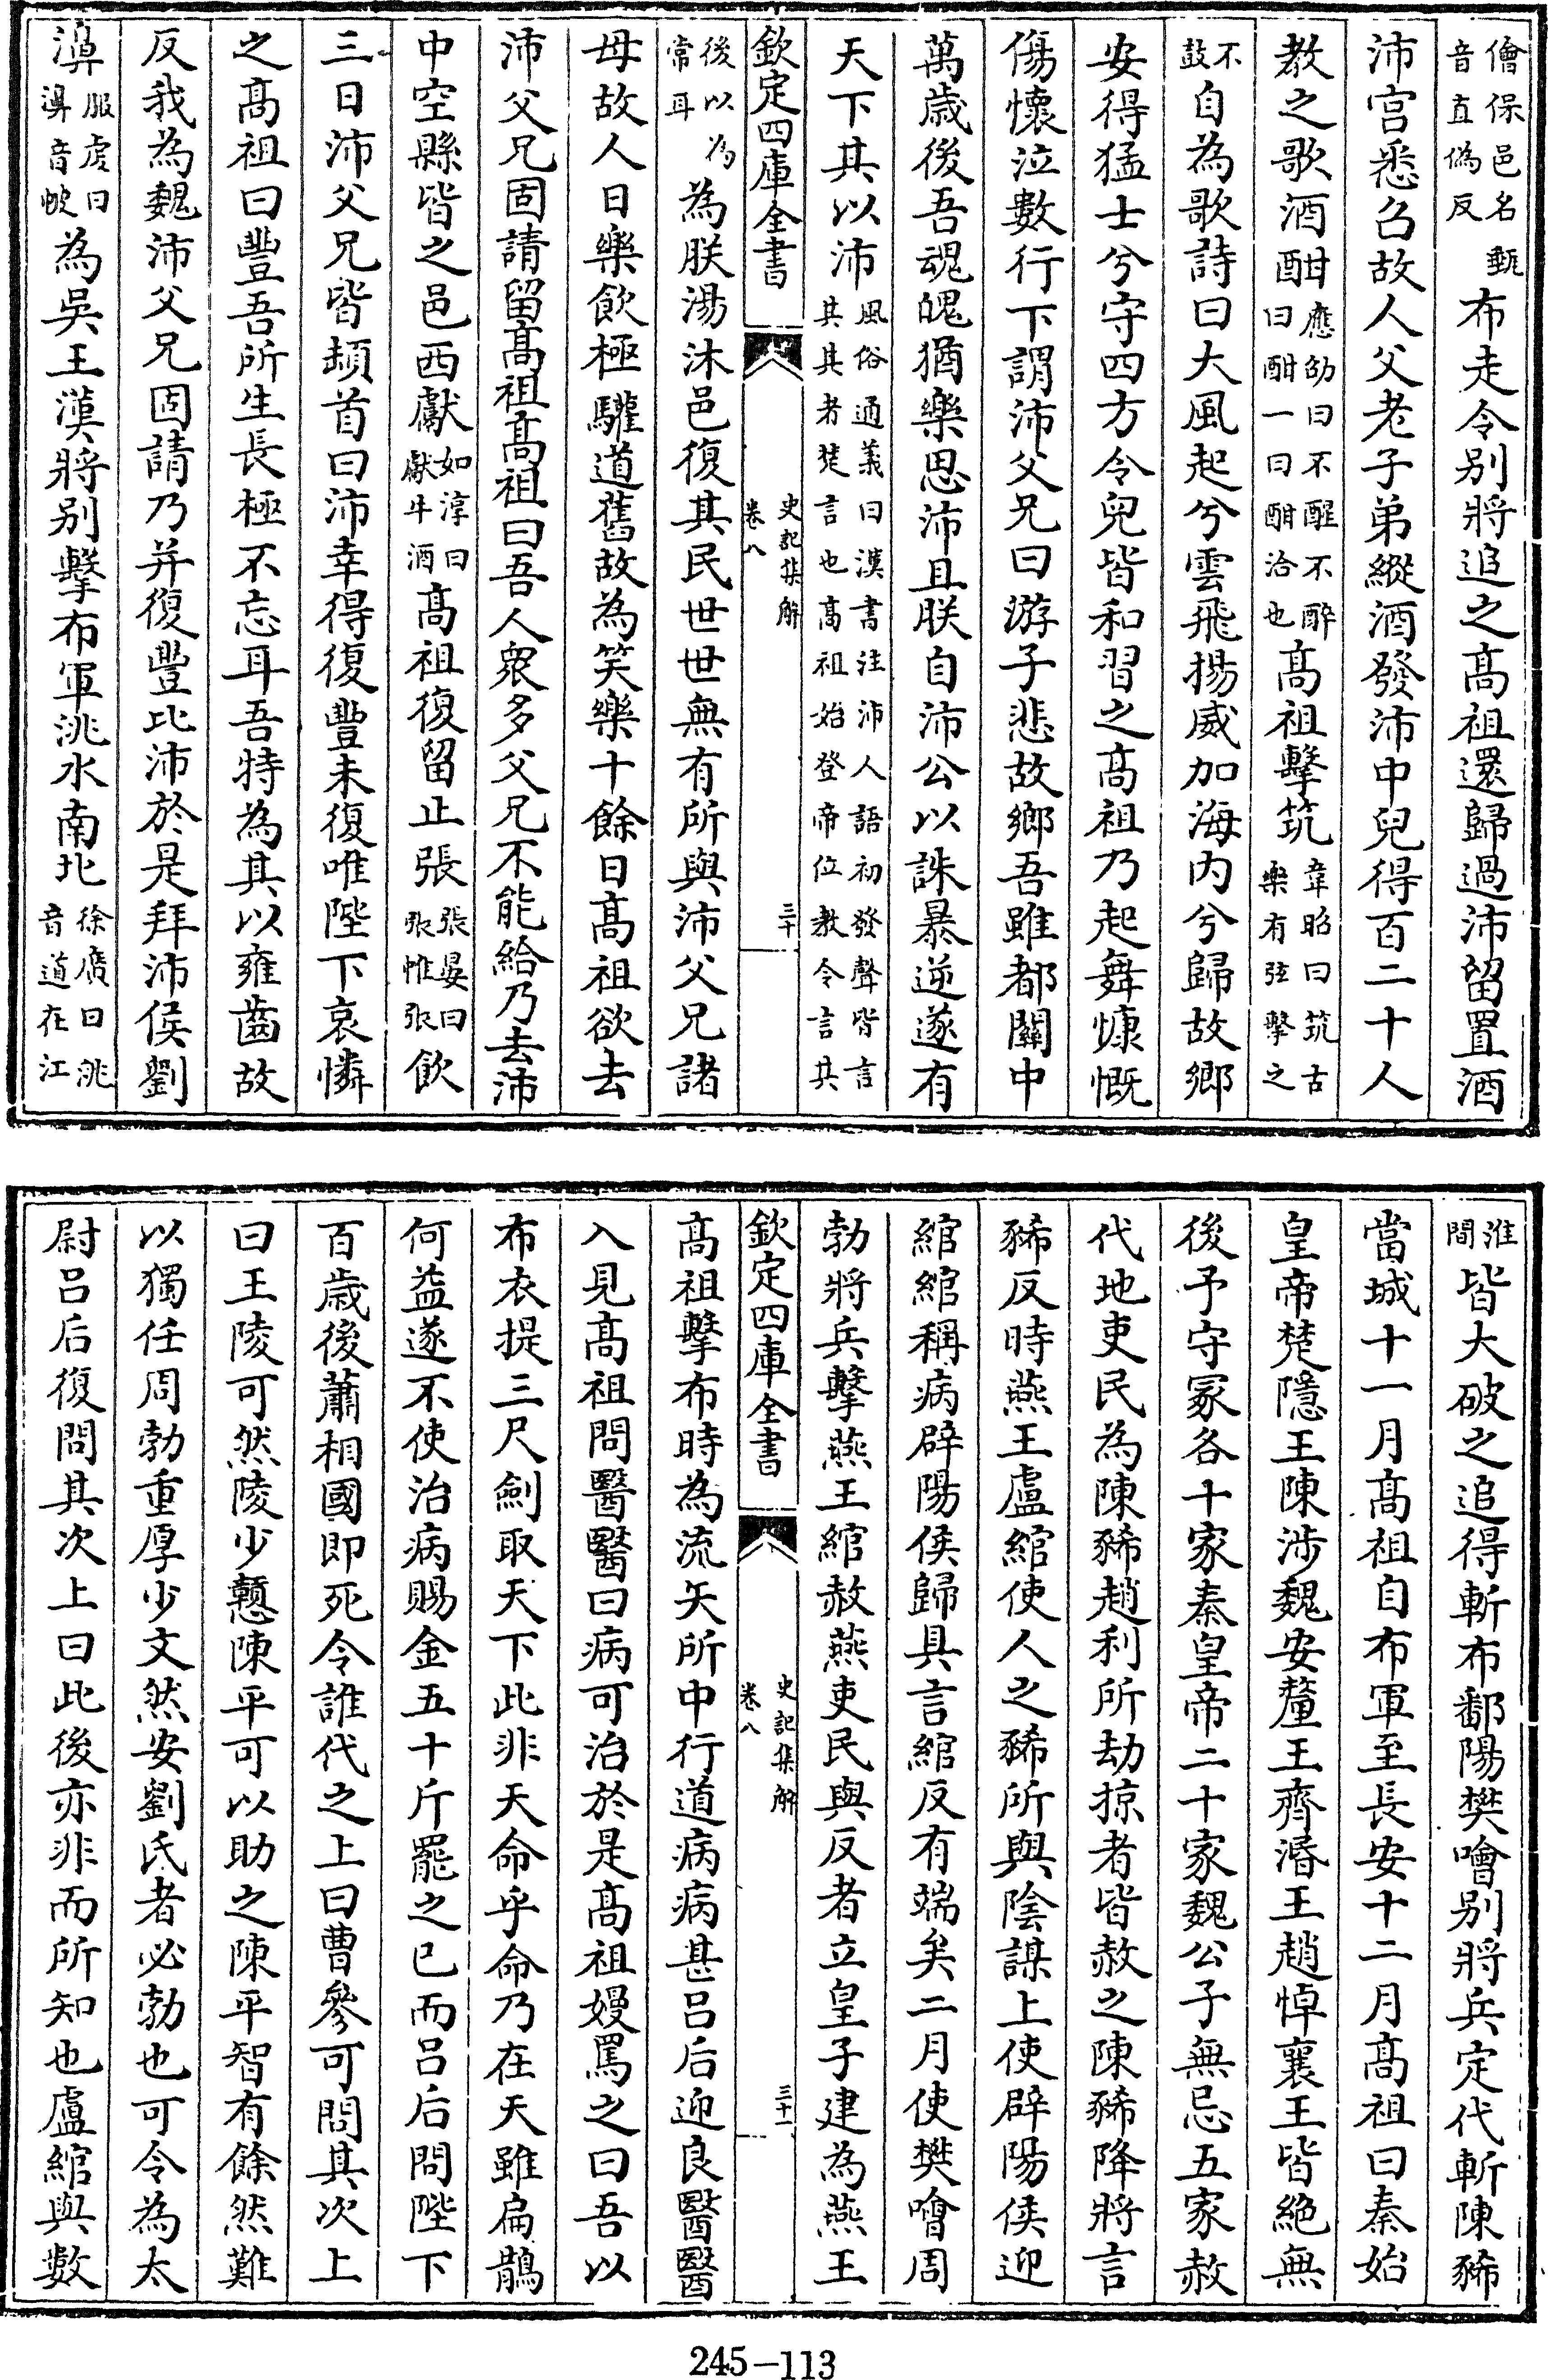 儈保邑名甀音直僞反布走令别將追之髙祖還歸過沛留置酒
沛宫悉召故人父老子弟縱酒發沛中兒得百二十人
教之歌酒酣應劭曰不醒不醉曰酣一曰酣洽也髙祖擊筑韋昭曰筑古樂有弦擊之
不鼓自為歌詩曰大風起兮雲飛揚威加海内兮歸故鄉
安得猛士兮守四方令兒皆和習之髙祖乃起舞慷慨
傷懷泣數行下謂沛父兄曰游子悲故鄉吾雖都關中
萬歲後吾魂魄猶樂思沛且朕自沛公以誅暴逆遂有
天下其以沛風俗通義曰漢書注沛人語初發聲皆言其其者楚言也髙祖始登帝位教令言其
欽定四庫全書
史記集解
卷八
三十
後以為常耳為朕湯沐邑復其民世世無有所與沛父兄諸
母故人日樂飲極驩道舊故為笑樂十餘日髙祖欲去
沛父兄固請留髙祖髙祖曰吾人衆多父兄不能給乃去沛
中空縣皆之邑西獻如淳曰獻牛酒髙祖復留止張張晏曰張帷張飲
三日沛父兄皆頓首曰沛幸得復豐未復唯陛下哀憐
之髙祖曰豐吾所生長極不忘耳吾特為其以雍齒故
反我為魏沛父兄固請乃并復豐比沛於是拜沛侯劉
濞服虔曰濞音帔為吳王漢將别擊布軍洮水南北徐廣曰洮音道在江
淮間皆大破之追得斬布鄱陽樊噲别將兵定代斬陳豨
當城十一月髙祖自布軍至長安十二月髙祖曰秦始
皇帝楚隱王陳涉魏安釐王齊湣王趙悼襄王皆絶無
後予守冢各十家秦皇帝二十家魏公子無忌五家赦
代地吏民為陳豨趙利所劫掠者皆赦之陳豨降將言
豨反時燕王盧綰使人之豨所與陰謀上使辟陽侯迎
綰綰稱病辟陽侯歸具言綰反有端矣二月使樊噲周
勃將兵擊燕王綰赦燕吏民與反者立皇子建為燕王
欽定四庫全書
史記集解
卷八
三十一
髙祖擊布時為流矢所中行道病病甚吕后迎良醫醫
入見髙祖問醫醫曰病可治於是髙祖嫚罵之曰吾以
布衣提三尺劍取天下此非天命乎命乃在天雖扁鵲
何益遂不使治病賜金五十斤罷之已而吕后問陛下
百歲後蕭相國即死令誰代之上曰曹參可問其次上
曰王陵可然陵少戇陳平可以助之陳平智有餘然難
以獨任周勃重厚少文然安劉氏者必勃也可令為太
尉吕后復問其次上曰此後亦非而所知也盧綰與數
245-113